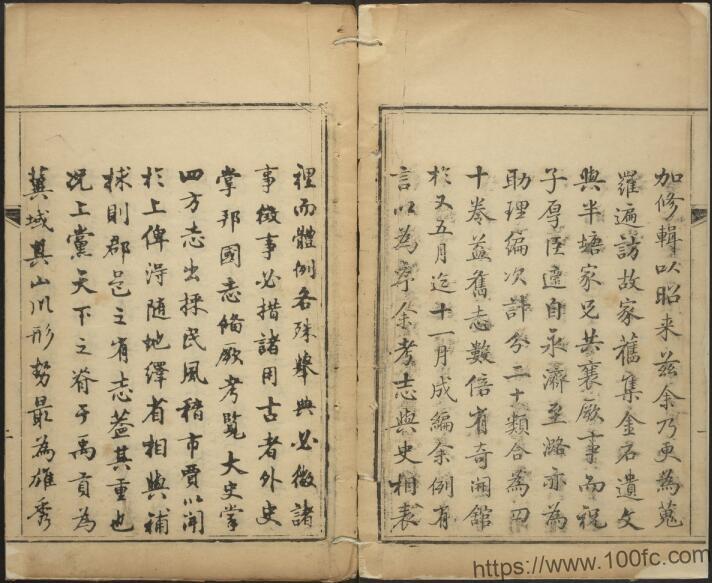 加修輯以昭来玆余乃更為蒐
羅遍訪故家舊集金石遺文
與半塘家兄共襄厥事而祝
子厚臣適自永濟至潞亦為
助理編次計分二十類合為四
十卷益舊志數倍有奇開館
於又五月迄十一月成編余例有
言以為序余考志與史相表
裡而體例各殊舉典必徵諸
事徵事必措諸用古者外史
掌邦國志備厥考覧大史掌
四方志出採民風稽市賈以聞
於上俾淂随地繹省相與補
捄則郡邑之有志葢其重也
况上黨天下之脊于禹貢為
冀域其山川形勢最為雄秀
一
一
https://www.100fc.com